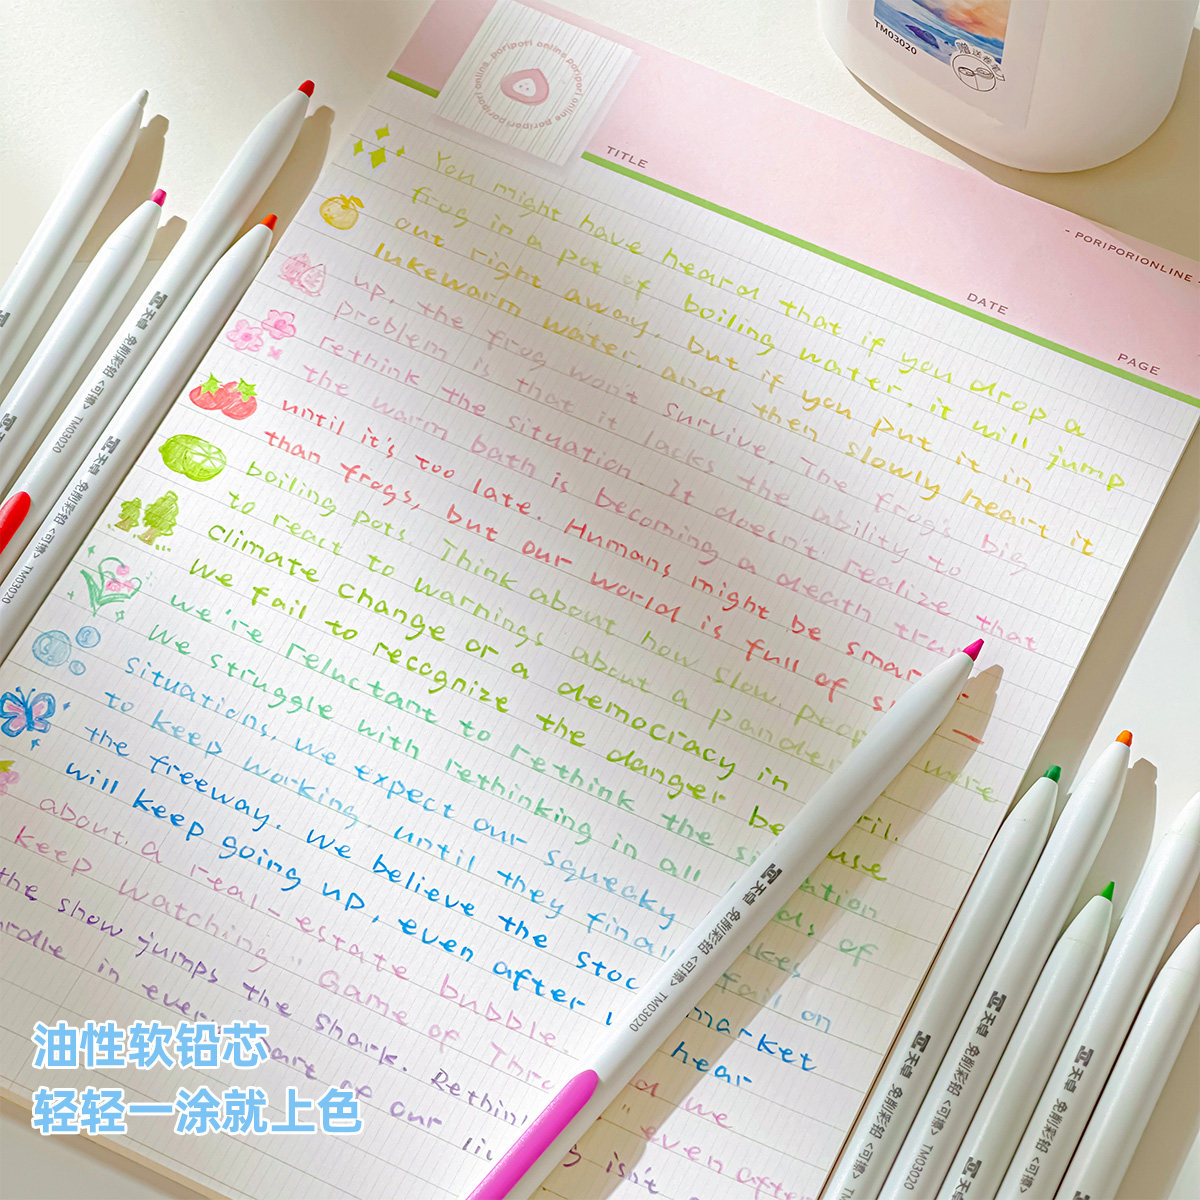 TM03020
赠送卷笔刀
poripori online. poripori online. poripori online. poripori online.
TITLE
- PORIPORIONLINE -
DATE
PAGE
You might have heard that if you drop a
frog in a pot of boiling water, it will jump
out right away, but if you put it in
lukewarm water, and then slowly heart it
up, the frog won't survive. The frog's big
problem is that it lacks the ability to
rethink the situation. It doesn't realize that
the warm bath is becoming a death trap
until it's too late. Humans might be smar
than frogs, but our world is full of sl
boiling pots. Think about how slow peo were
to react to warnings about a pandem
climate change or a democracy in ril.
We fail to recognize the danger be use
we're reluctant to rethink the si ation
We struggle with rethinking in all ds of
situations. We expect our squeaky akes
to keep working until they finall fail on
the freeway. We believe the stoc market
will keep going up, even after hear
about a real-estate bubble. d we
keep watching "Game of Thro " even after
the show jumps the shark. Rethin g isn't
urdle in every part of our li
天卓 免削彩铅<可擦> TM03020
天卓 免削彩铅<可擦> TM03020
天卓 免削彩铅<可擦> TM03020
天卓 免削彩铅<可擦> TM03020
天卓 免削彩铅<可擦>
天卓 免削彩铅<可擦>
油性软铅芯
轻轻一涂就上色